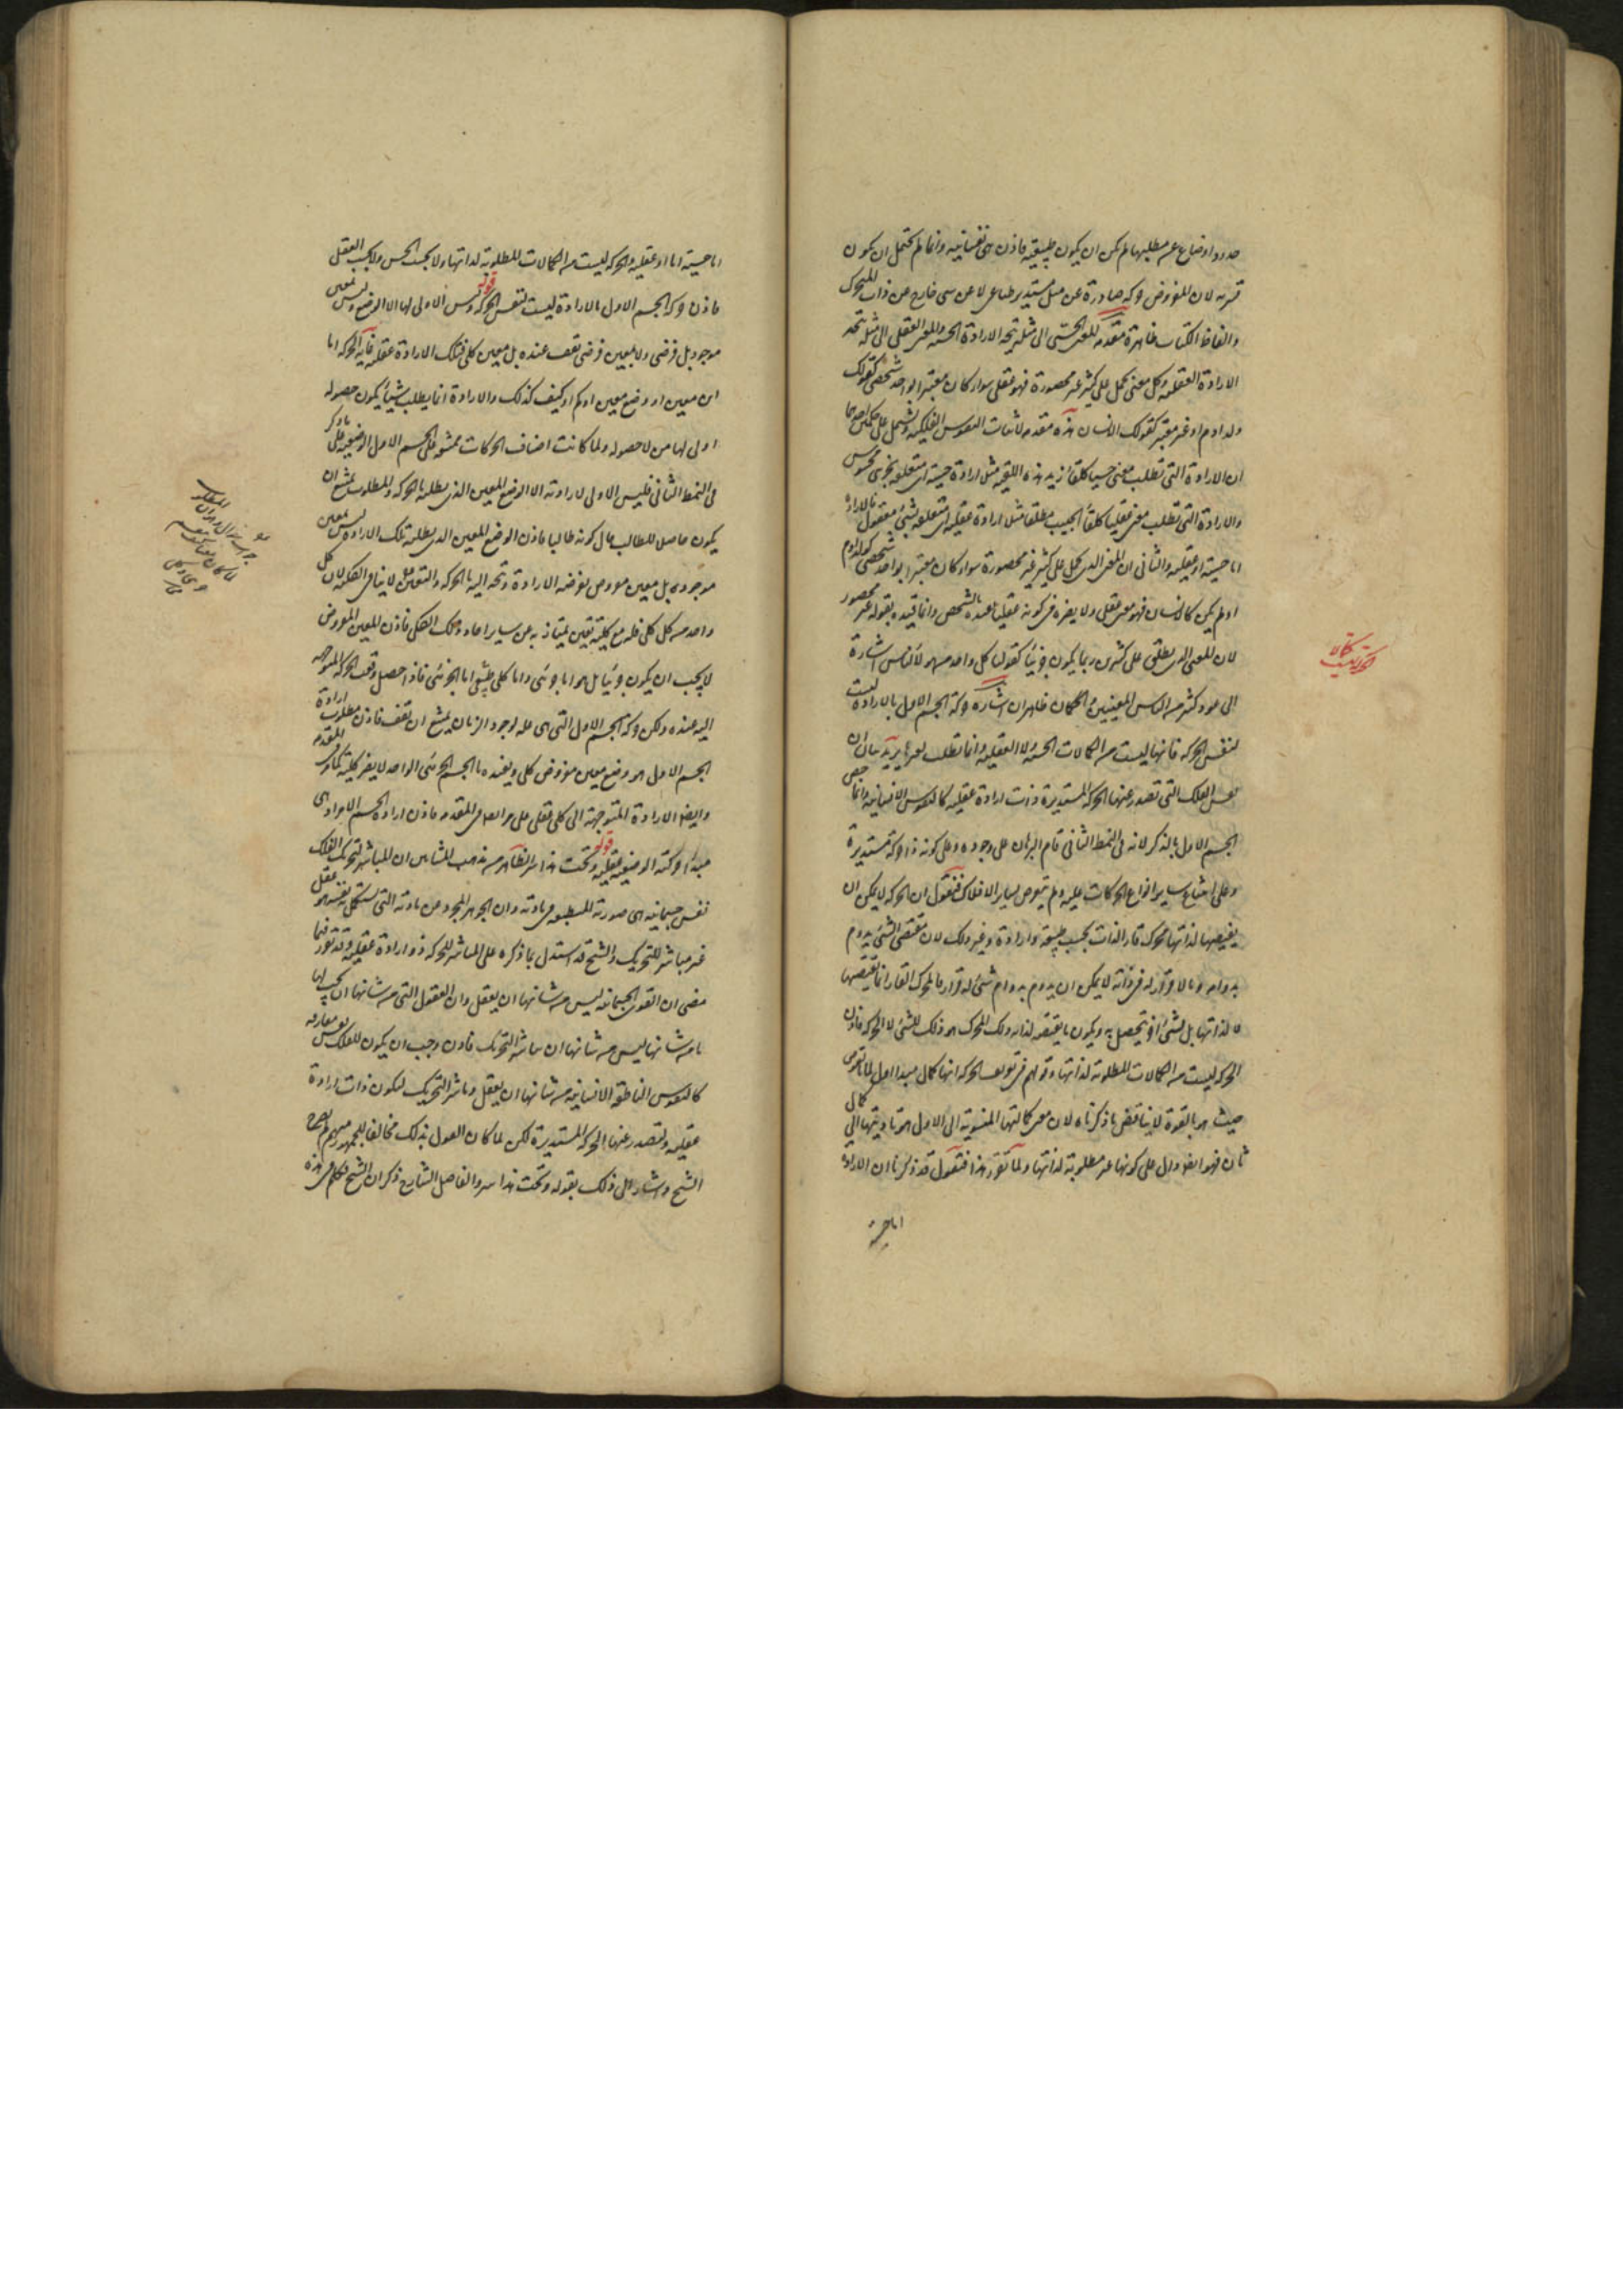 حدود او ضاع عن مطلبها لم يكن ان يكون طبيعية فاذن هى نفسانية وانما لم يحتمل ان يكون
قسرية لان المفروض حركة صادرة عن ميل مستدير طباعى لا عن شى خارج عن ذات المتحرك
والفاظ الكتاب ظاهرة مقدمة المعنى الحسى الى مثله يتجه الارادة الحسية والمعنى العقلى الى مثله يتجه
الارادة العقلية وكل معنى يحمل على كثير غير محصورة فهو عقلى سواء كان معتبرا بواحد شخصى كقولك
ولد ادم او غير معتبر كقولك الانسان هذه مقدمة لاثبات النفوس الفلكية وتشتمل على حكمين احدهما
ان الارادة التى تطلب معنى حسيا كلقاء زيد هذه اللقية مثلا ارادة حسية اى متعلقة بجزئى محسوس
والارادة التى تطلب معنى عقليا كلقاء الحبيب مطلقا مثلا ارادة عقلية اى متعلقة بشئ معقول فالارادة
اما حسية او عقلية والثانى ان المعنى الذى يحمل على كثير غير محصورة سواء كان معتبرا بواحد شخصى كولد ادم
او لم يكن كالانسان فهو معنى عقلى ولا يضره فى كونه عقليا تقييده بالشخص وانما قيده بقوله غير محصور
لان المعنى الذى يطلق على كثيرين ربما يكون جزئيا كقولنا كل واحد من هولاء الناس اشارة
الى عدد كثير من الناس المعينين والحكمان ظاهران اشارة حركة الجسم الاول بالارادة ليست
لنفس الحركة فانها ليست من الكمالات الحسية ولا العقلية وانما تطلب لغيرها يريد بيان ان
نفس الفلك التى تصدر عنها الحركة المستديرة ذات ارادة عقلية كالنفوس الانسانية وانما خص
الجسم الاول بالذكر لانه فى النمط الثانى قام البرهان على وجوده وعلى كونه ذا حركة مستديرة
وعلى امتناع ساير انواع الحركات عليه ولم يتعرض لساير الافلاك فنقول ان الحركة لا يمكن ان
يقتضيها لذاتها محرك قار الذات بحسب طبيعة او ارادة وغير ذلك لان مقتضى الشئ يدوم
بدوامه وما لا قرار له فى ذاته لا يمكن ان يدوم بدوام شئ له قرار فالمحرك القار انما يقتضيها
لا لذاتها بل لشئ اخر يتحصل به ويكون ما يقتضيه لذاته ذلك المحرك هو ذلك الشئ لا الحركة فاذن
الحركة ليست من الكمالات المطلوبة لذاتها وقولهم فى تعريف الحركة انها كمال اول لما بالقوة
حيث هو بالقوة لا يناقض ما ذكرناه لان معنى كمالتها المنسوبة الى الاول هو تاديتها الى كمال
ثان فهو ايضا دال على كونها غير مطلوبة لذاتها ولما تقرر هذا فنقول قد ذكرنا ان الارادة
اما حسية
اما حسية واما عقلية والحركة ليست من الكمالات المطلوبة لذاتها ولا بحسب الحس ولا بحسب العقل
فاذن حركة الجسم الاول بالارادة ليست لنفس الحركة قوله وليس الاولى لها الا الوضع وليس بمعين
موجود بل فرضى ولا بمعين فرضى تقف عنده بل معين كلى فتلك الارادة عقلية غاية الحركة اما
اين معين او وضع معين او كم او كيف كذلك والارادة انما يطلب شيئا يكون حصوله
اولى لها من لا حصوله ولما كانت اصناف الحركات يمتنع على الجسم الاول الا الوضعية على ما ذكر
فى النمط الثانى فليس الاولى لارادته الا الوضع المعين الذى يطلبه بالحركة والمطلوب يمتنع ان
يكون حاصلا للطالب حال كونه طالبا فاذن الوضع المعين الذى يطلبه تلك الارادة ليس بمعين
موجود بل معين مفروض يفرضه الارادة وتتجه اليه بالحركة والتعين لا ينافى الكلية لان كل
واحد من كل كلى فله مع كليته تعين يمتاز به عن ساير احاد ذلك الكلى فاذن المعين المفروض
لا يجب ان يكون جزئيا بل هو اما جزئى واما كلى اما الجزئى فاذا حصل وقفت الحركة المتوجهة
اليه عنده ولكن حركة الجسم الاول التى هى علة لوجود الزمان يمتنع ان تقف فاذن مطلوب ارادة
الجسم الاول هو وضع معين مفروض كلى وتقييده بالجسم الجزئى الواحد لا يضر كليته كما مر فى المقدمة
وايضا الارادة المتوجهة الى كلى عقلى على ما مر ايضا فى المقدمة فاذن ارادة الجسم الاول هى
مبدا حركته الوضعية عقلية قوله وتحت هذا سر الظاهر من مذهب المشائين ان المباشر لتحريك الفلك
نفس جسمانية هى صورته المنطبعة فى مادته وان الجوهر المجرد عن مادته التى يستكمل نفسه به عقل
غير مباشر للتحريك والشيخ قد استدل بما ذكره على ان المباشر للحركة ذو ارادة عقلية وقد تقرر فيما
مضى ان القوى الجسمانية ليس من شانها ان يعقل وان العقول التى من شانها ان يجب لها
ما من شانها ليس من شانها ان يباشر التحريك فاذن وجب ان يكون للفلك نفس مفارقة
كالنفوس الناطقة الانسانية من شانها ان يعقل ويباشر التحريك لتكون ذات ارادة
عقلية وتصدر عنها الحركة المستديرة لكن لما كان القول بذلك مخالفا للجمهور منهم لم يصرح
الشيخ واشار الى ذلك بقوله وتحت هذا سر والفاضل الشارح ذكر ان الشيخ تكلم فى هذه